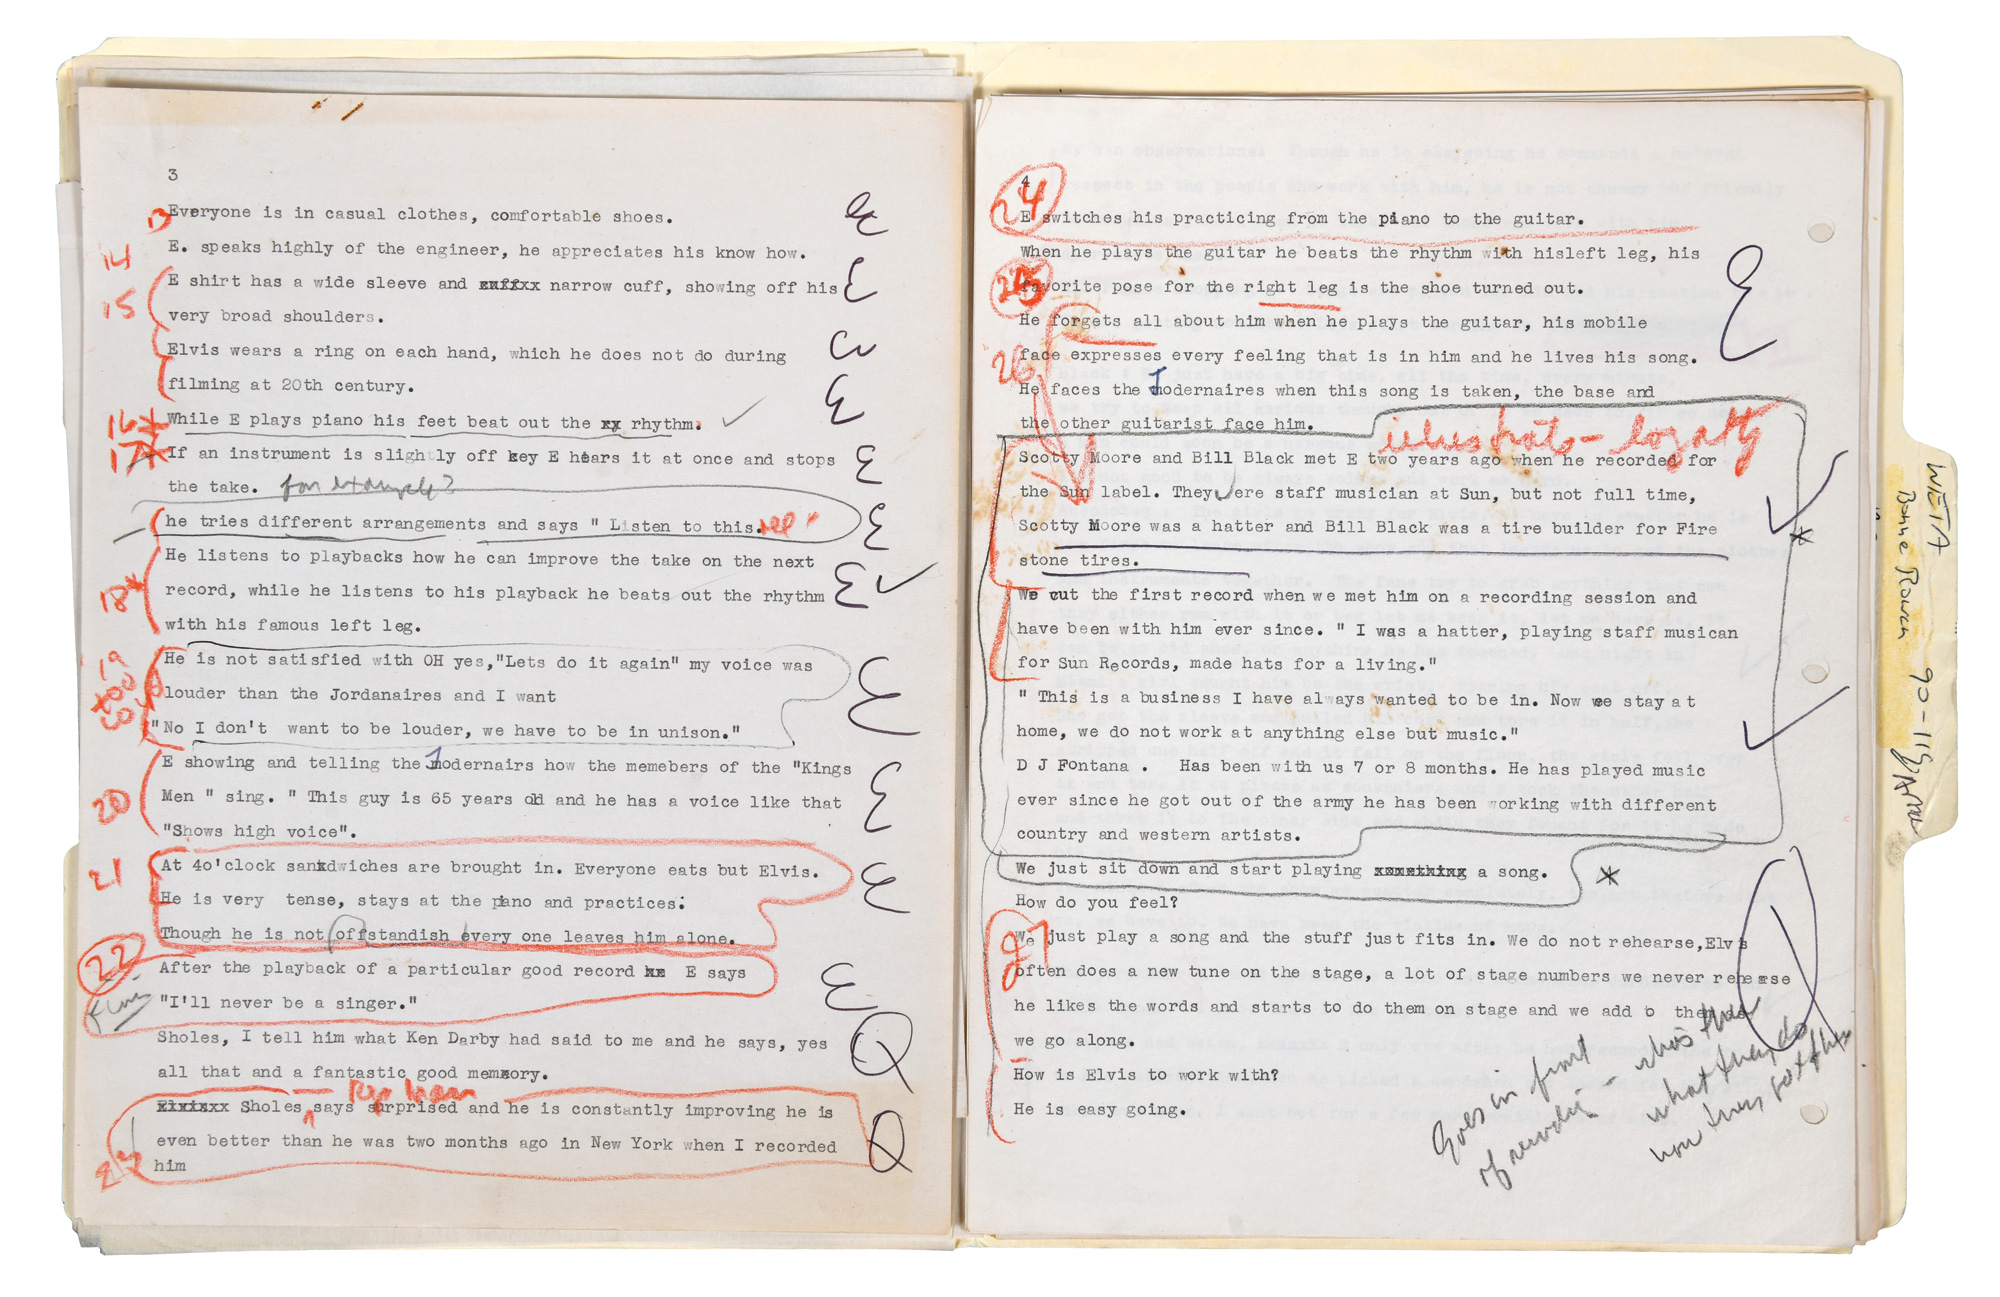 3
Everyone is in casual clothes, comfortable shoes.
E. speaks highly of the engineer, he appreciates his know how.
E shirt has a wide sleeve and narrow cuff, showing off his
very broad shoulders.
Elvis wears a ring on each hand, which he does not do during
filming at 20th century.
While E plays piano his feet beat out the xy rhythm.
If an instrument is slightly off key E hears it at once and stops
the take. for example?
he tries different arrangements and says " Listen to this.
He listens to playbacks how he can improve the take on the next
record, while he listens to his playback he beats out the rhythm
with his famous left leg.
He is not satisfied with OH yes,"Lets do it again" my voice was
louder than the Jordanaires and I want
"No I don't want to be louder, we have to be in unison."
E showing and telling the Jodernairs how the memebers of the "Kings
Men " sing. " This guy is 65 years old and he has a voice like that
"Shows high voice".
At 4o'clock sandwiches are brought in. Everyone eats but Elvis.
He is very tense, stays at the piano and practices.
Though he is not offstandish every one leaves him alone.
After the playback of a particular good record E says
"I'll never be a singer."
Sholes, I tell him what Ken Darby had said to me and he says, yes
all that and a fantastic good memory.
Sholes says surprised and he is constantly improving he is
even better than he was two months ago in New York when I recorded
him
13
14
15
16
17
18
19
20
21
22
4
E switches his practicing from the piano to the guitar.
When he plays the guitar he beats the rhythm with hisleft leg, his
favorite pose for the right leg is the shoe turned out.
He forgets all about him when he plays the guitar, his mobile
face expresses every feeling that is in him and he lives his song.
He faces the Jodernaires when this song is taken, the base and
the other guitarist face him.
illustrate - loyalty
Scotty Moore and Bill Black met E two years ago when he recorded for
the Sun label. They were staff musician at Sun, but not full time,
Scotty Moore was a hatter and Bill Black was a tire builder for Fire
stone tires.
We cut the first record when we met him on a recording session and
have been with him ever since. " I was a hatter, playing staff musican
for Sun Records, made hats for a living."
" This is a business I have always wanted to be in. Now we stay at
home, we do not work at anything else but music."
D J Fontana . Has been with us 7 or 8 months. He has played music
ever since he got out of the army he has been working with different
country and western artists.
We just sit down and start playing a song.
How do you feel?
We just play a song and the stuff just fits in. We do not rehearse,Elvis
often does a new tune on the stage, a lot of stage numbers we never rehearse
he likes the words and starts to do them on stage and we add to them as
we go along.
How is Elvis to work with?
He is easy going.
24
25
26
27
Goes in front
what they do
how they got
WETA
90-119